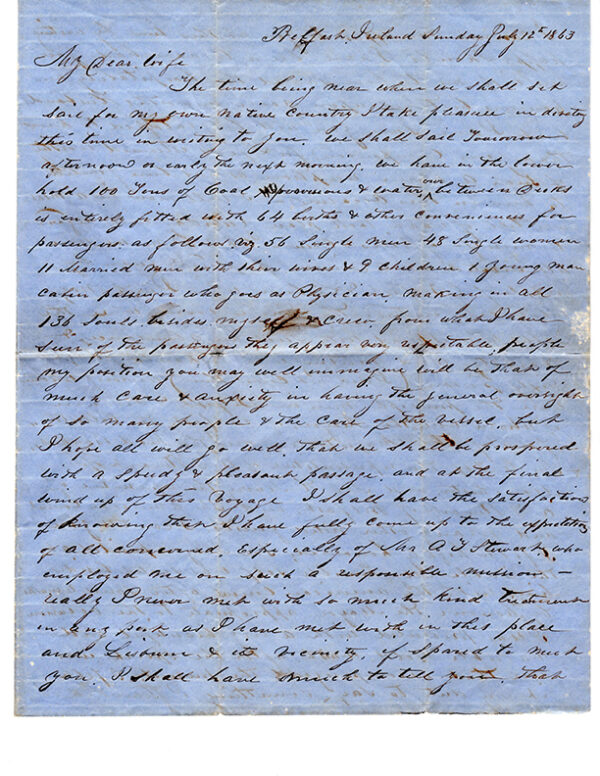 Belfast, Ireland Sunday July 12th 1863
My Dear Wife
The time being near when we shall set
sail for my own native country I take pleasure in devoting
this time in writing to you. we shall sail Tomorrow
afternoon or early the next morning. we have in the lower
hold 100 Tons of Coal provisions & water, our between Decks
is entirely fitted with 64 births & other conveniences for
passengers. as follows viz 56 Single men 48 Single women
11 Married men with their wives & 9 children 1 Young man
cabin passenger who goes as Physician, making in all
136 Souls, besides myself & Crew. from what I have
seen of the passengers they appear very respectable people
my position you may well immagine will be that of
much Care & anxiety in having the general oversight
of so many people & the care of the vessel, but
I hope all will go well, that we shall be prospered
with a speedy & pleasant passage. and at the final
wind up of this Voyage I shall have the satisfaction
of knowing that I have fully come up to the expectations
of all concerned, Especially of Mr A T Stewart who
employed me on such a responsible mission —
really I never met with so much kind treatment
in any port as I have met with in this place
and Lisburn & its vicinity, if Spared to meet
you, I shall have much to tell you, that